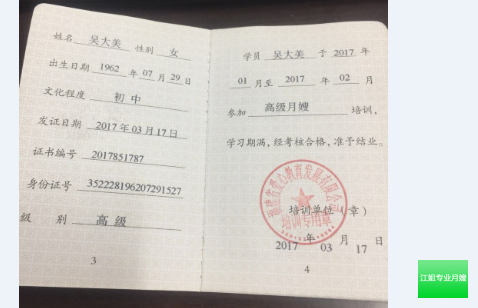 姓名 吴大美 性别 女
出生日期 1962 年 07 月 29 日
文化程度 初中
发证日期 2017年03月17日
证书编号 2017851787
身份证号 352228196207291527
级 别 高级
3
学员 吴大美 于 2017 年
01 月至 2017 年 02 月
参加 高级月嫂 培训,
学习期满,经考核合格,准予结业。
培训单位(章)
培训专用章
2017 年 03 月 17 日
4
江姐专业月嫂